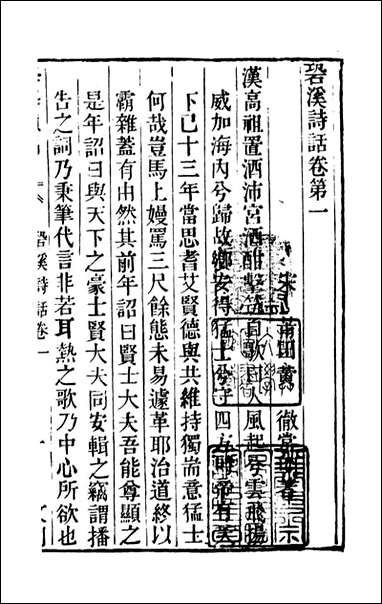 䂬溪詩話卷第一
宋 莆田黄 徹常明 著
漢高祖置酒沛宮酒酣擊筑自歌曰大風起兮雲飛揚
威加海内兮歸故鄉安得猛士兮守四方或帝有天
下已十三年當思耆艾賢德與共維持獨耑意猛士
何哉豈馬上嫚罵三尺餘態未易遽革耶治道終以
霸雜蓋有由然其前年詔曰賢士大夫吾能尊顯之
是年詔曰與天下之豪士賢大夫同安輯之竊謂播
告之詞乃秉筆代言非若耳熱之歌乃中心所欲也
䂬溪詩話卷一
一